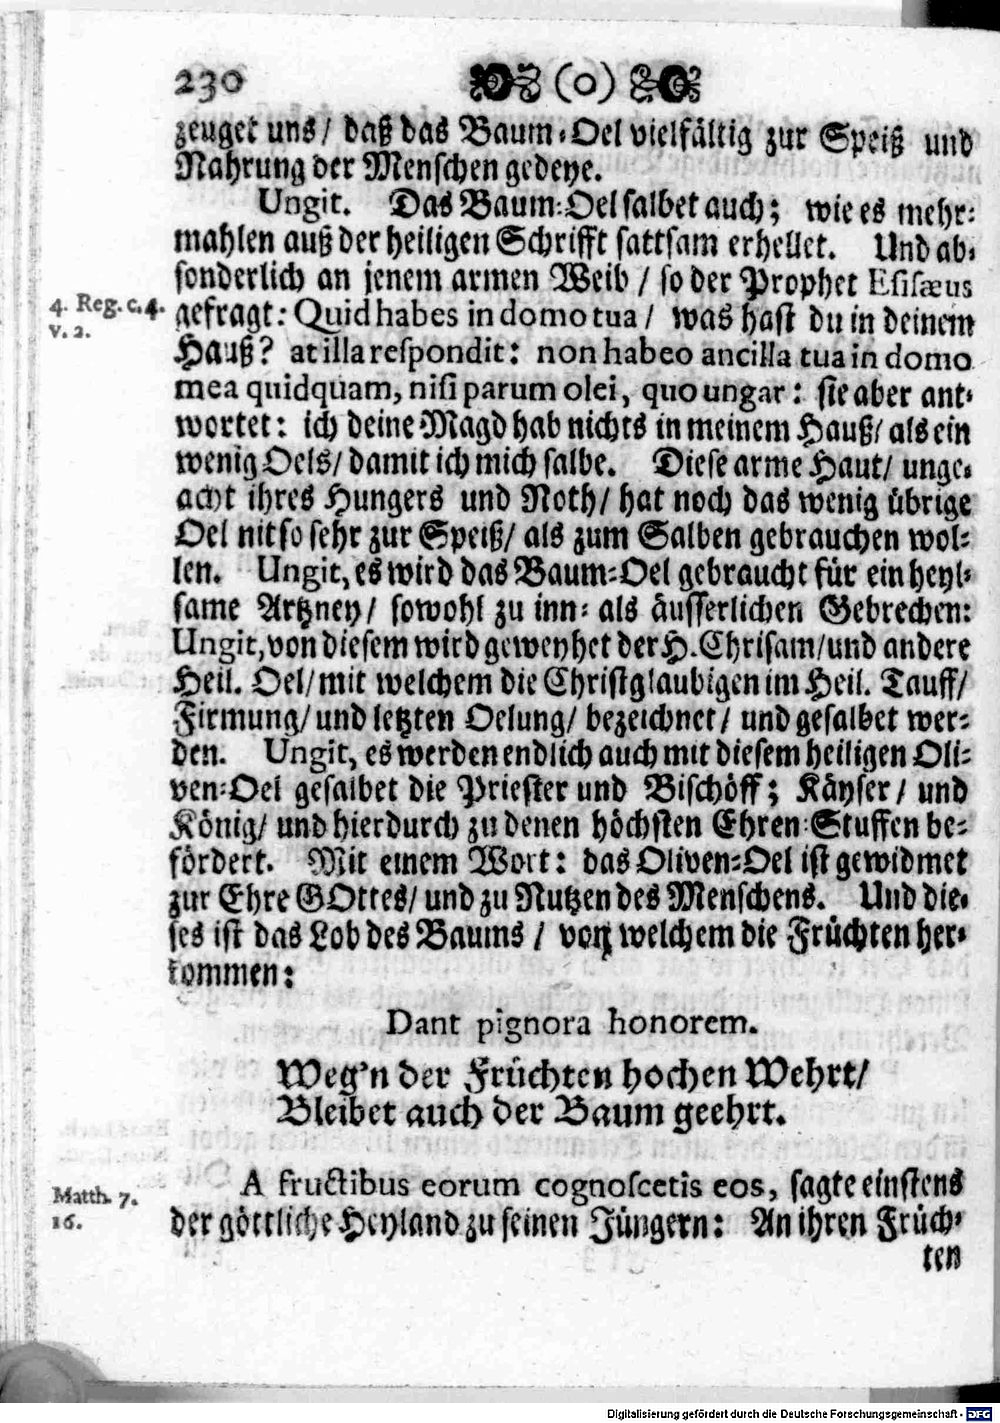 230 (o)
zeuget uns/ daß das Baum-Oel vielfältig zur Speiß und
Nahrung der Menschen gedeye.
Ungit. Das Baum-Oel salbet auch; wie es mehr-
mahlen auß der heiligen Schrifft sattsam erhellet. Und ab-
sonderlich an jenem armen Weib / so der Prophet Elisæus
4. Reg. c. 4.
v. 2.
gefragt: Quid habes in domo tua / was hast du in deinem
Hauß? at illa respondit: non habeo ancilla tua in domo
mea quidquam, nisi parum olei, quo ungar: sie aber ant-
wortet: ich deine Magd hab nichts in meinem Hauß/ als ein
wenig Oels/ damit ich mich salbe. Diese arme Haut/ unge-
acht ihres Hungers und Noth/ hat noch das wenig übrige
Oel nit so sehr zur Speiß/ als zum Salben gebrauchen wol-
len. Ungit, es wird das Baum-Oel gebraucht für ein heyl-
same Artzney/ sowohl zu inn- als äusserlichen Gebrechen:
Ungit, von diesem wird geweyhet der H. Chrisam/und andere
Heil. Oel/ mit welchem die Christglaubigen im Heil. Tauff/
Firmung/ und letzten Oelung/ bezeichnet/ und gesalbet wer-
den. Ungit, es werden endlich auch mit diesem heiligen Oli-
ven-Oel gesalbet die Priester und Bischöff; Käyser / und
König/ und hierdurch zu denen höchsten Ehren-Stuffen be-
fördert. Mit einem Wort: das Oliven-Oel ist gewidmet
zur Ehre GOttes/ und zu Nutzen des Menschens. Und die-
ses ist das Lob des Baums / von welchem die Früchten her-
kommen:
Dant pignora honorem.
Weg'n der Früchten hochen Wehrt/
Bleibet auch der Baum geehrt.
Matth. 7.
16.
A fructibus eorum cognoscetis eos, sagte einstens
der göttliche Heyland zu seinen Jüngern: An ihren Früch-
ten
Digitalisierung gefördert durch die Deutsche Forschungsgemeinschaft - DFG